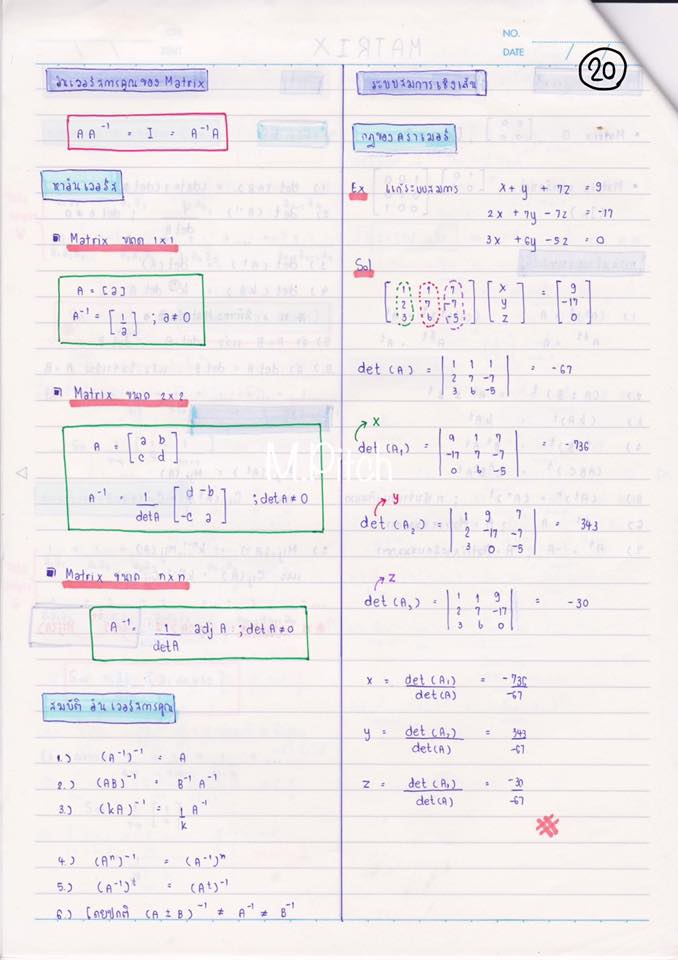 NO.
DATE
20
อินเวอร์สการคูณของ Matrix
A A⁻¹ = I = A⁻¹A
หาอินเวอร์ส
Matrix ขนาด 1×1
A = [a]
A⁻¹ = [1/a] ; a≠0
Matrix ขนาด 2×2
A = [a b
c d]
A⁻¹ = 1/detA [d -b
-c a] ; detA ≠ 0
Matrix ขนาด n×n
A⁻¹ = 1/detA adj A ; detA≠0
สมบัติ อินเวอร์สการคูณ
1.) (A⁻¹)⁻¹ = A
2.) (AB)⁻¹ = B⁻¹ A⁻¹
3.) (kA)⁻¹ = 1/k A⁻¹
4.) (Aⁿ)⁻¹ = (A⁻¹)ⁿ
5.) (A⁻¹)ᵗ = (Aᵗ)⁻¹
6.) โดยปกติ (A ± B)⁻¹ ≠ A⁻¹ ≠ B⁻¹
ระบบสมการเชิงเส้น
กฎของคราเมอร์
Ex แก้ระบบสมการ x + y + 7z = 9
2x + 7y - 7z = -17
3x + 6y - 5z = 0
Sol
[1 1 7] [x] = [9]
[2 7 -7] [y] [-17]
[3 6 -5] [z] [0]
det (A) = |1 1 1| = -67
|2 7 -7|
|3 6 -5|
x
det (A₁) = |9 1 7| = -736
|-17 7 -7|
|0 6 -5|
y
det (A₂) = |1 9 7| = 343
|2 -17 -7|
|3 0 -5|
z
det (A₃) = |1 1 9| = -30
|2 7 -17|
|3 6 0|
x = det (A₁)/det(A) = -736/-67
y = det (A₂)/det(A) = 343/-67
z = det (A₃)/det(A) = -30/-67
M.Pitch